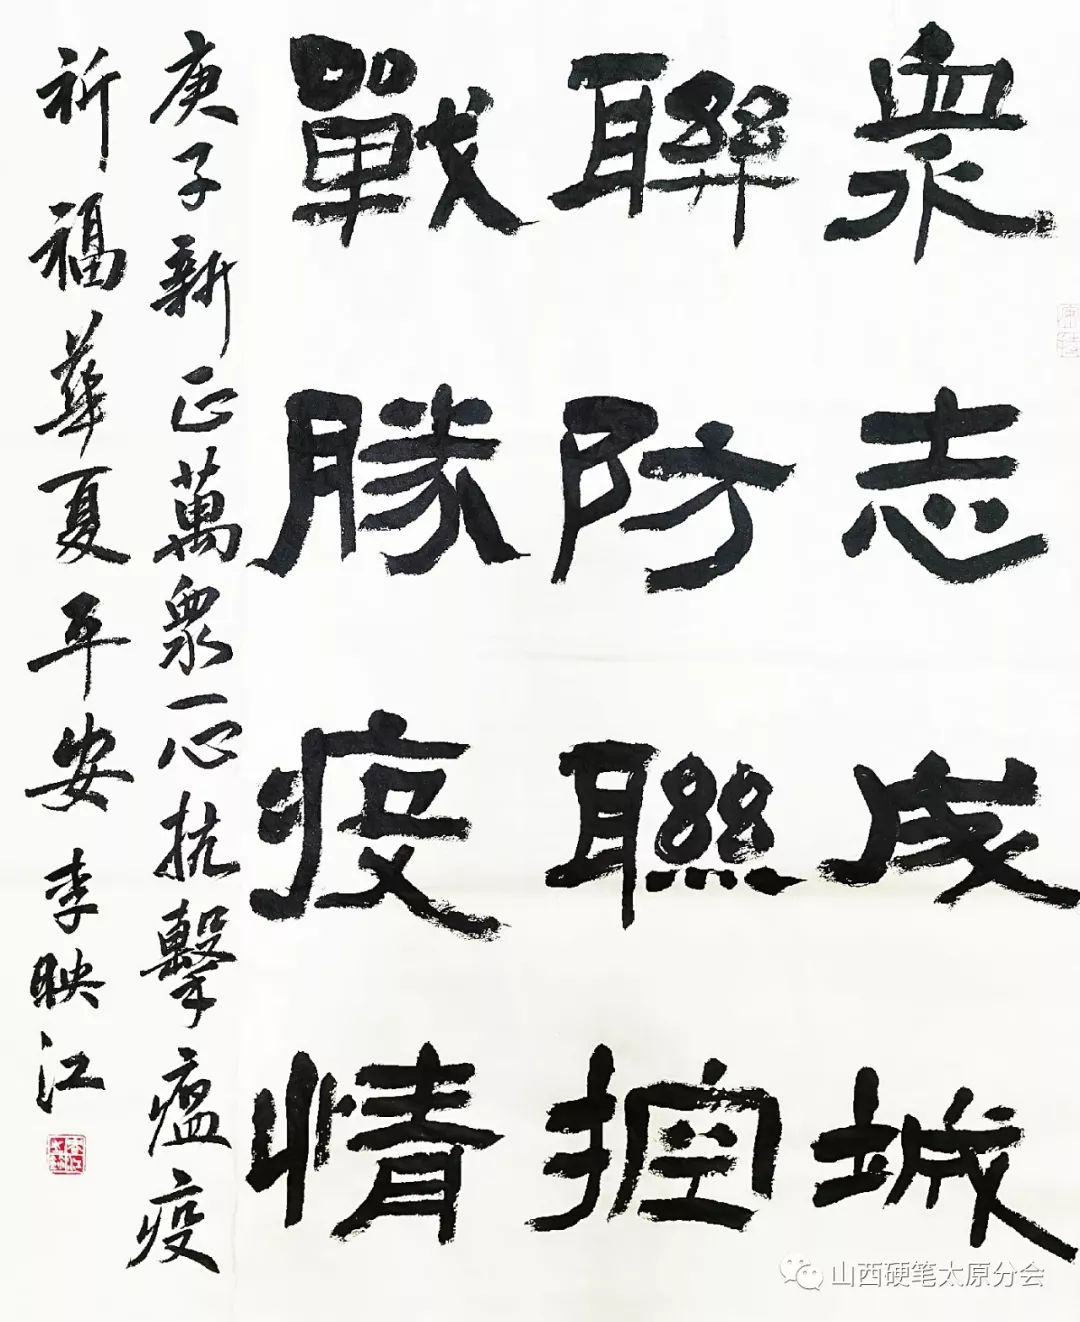 衆志成城
聯防聯控
戰勝疫情
庚子新正萬衆一心抗擊瘟疫
祈福華夏平安李映江
山西硬笔太原分会